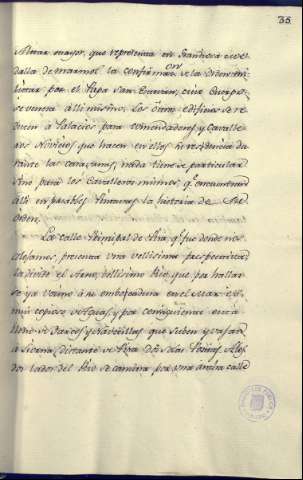 35
Altar mayor, que representa en grandiosa me
dalla de marmol la confirm.on de la Orden mi
litar por el Papa San                cuio Cuerpo
se venera alli mismo. Los otros edificios se re
ducen a Palacios para Comendadores, y Cavalle
ros Novicios que hacen en ellos su residencia du
rante las caravanas, nada tiene de particular
sino para los Cavalleros mismos, q.e encuentran
alli en varias Pinturas la historia de su
Orden.
La calle Principal de Pisa q.e fue donde nos
alojamos, presenta una vellisima perspectiva
la divide el Arno, vellisimo Rio, que por hallar
se ya vecino à su embocadura en el Mar es
mui copioso de Aguas, y por consiguiente esta
lleno de Barcos y                que suben y vajan
a                distante de Pisa dos solas Postas. A los
dos lados del Rio se camina por una ancha calle